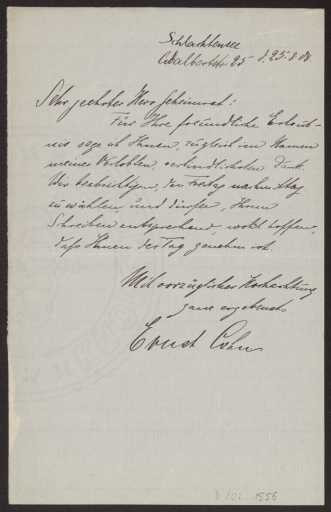 Schlachtensee
Adalbertstr. 25 d. 25.8.08.
Sehr geehrter Herr Geheimrat:
Für Ihre freundliche Erlaub-
nis sage ich Ihnen, zugleich im Namen
meiner Verlobten, verbindlichsten Dank.
Wir beabsichtigen, den Freitag nachmittag
zu wählen, und dürfen, Ihrem
Schreiben entsprechend, wohl hoffen,
daß Ihnen der Tag genehm ist.
Mit vorzüglicher Hochachtung
ganz ergebenst
Ernst Cohn
1556